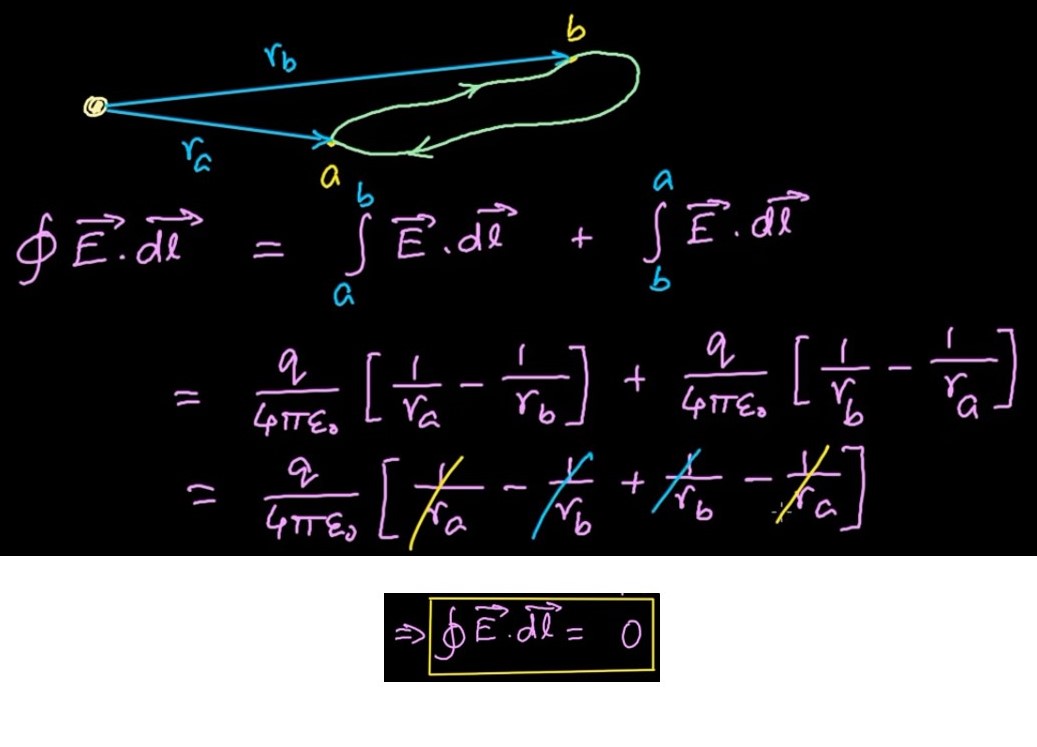 b
r_b
q
r_a
a
∮ E⃗ . dl⃗ = ∫_a^b E⃗ . dl⃗ + ∫_b^a E⃗ . dl⃗
= q/4πε₀ [ 1/r_a − 1/r_b ] + q/4πε₀ [ 1/r_b − 1/r_a ]
= q/4πε₀ [ 1/r_a − 1/r_b + 1/r_b − 1/r_a ]
⇒ ∮ E⃗ . dl⃗ = 0